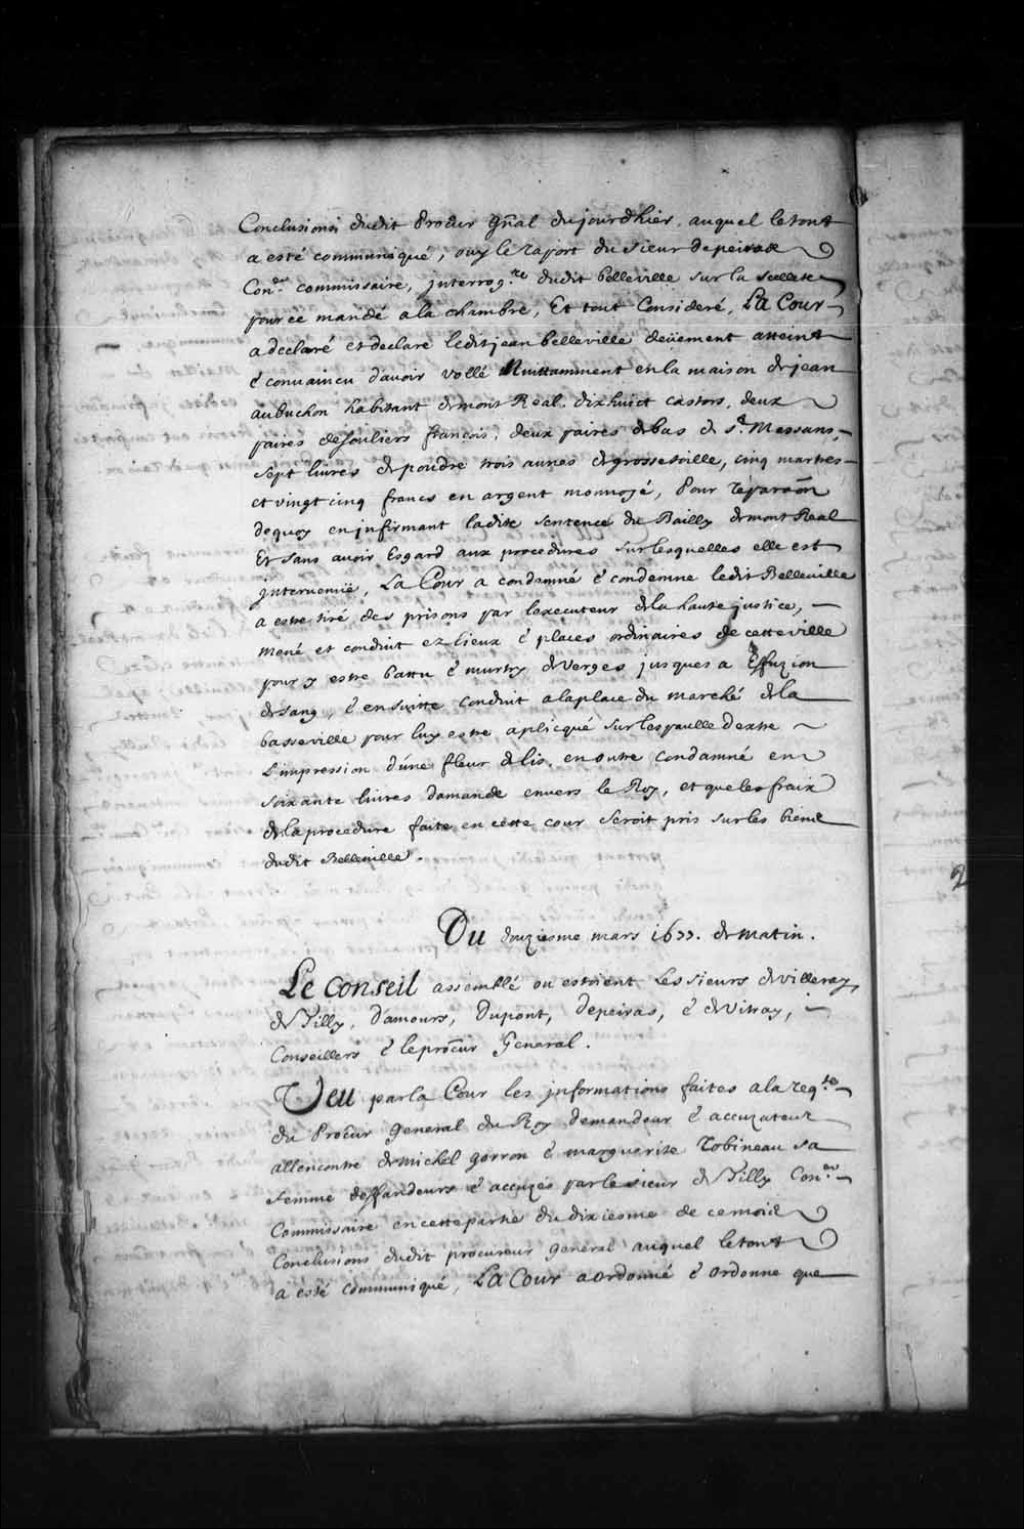 Conclusions dudit Procur gñal dujourdhier, auquel letout
a esté communiqué, ouy le raport du sieur depeiras
Con.er commissaire, jnterrog.re dudit belleville sur la sellete
pour ce mandé ala chambre, Et tout Consideré, La Cour
adeclaré et declare leditjean belleville deüement atteint
é convaincu d'avoir vollé Nuittamment en la maison de jean
aubuchon habitant de mont Real, dixhuict castors, deux
paires de souliers francois, deux paires de bas de s.t Messans,
sept livres de poudre trois aunes de grosse toille, cinq martres
et vingt cinq francs en argent monnoyé, Pour reparaõn
dequoy en jnfirmant ladite sentence du Bailly de mont Real
Et sans avoir Esgard aux procedures surlesquelles elle est
jntervenüe, La Cour a condamné é condemne ledit Belleville
a estre tiré des prisons par lexecuteur de la haute justice,
mené et conduit ez lieux é places ordinaires de cette ville
pour y estre battu é murtry de verges jusques a Effuzion
de sang, é en suitte conduit alaplace du marché de la
basseville pour luy estre aplicqué sur lespaulle dextre
L'impression d'une fleur de lis, en outre condamné en
soixante livres damande envers le Roy, et que les fraix
de la procedure faite en cette cour seroit pris sur les biens
dudit Belleville.
Du douziesme mars 1677. de matin.
Le Conseil assemblé ou estoient Les sieurs de villeray,
de Tilly, d'amours, dupont, depeiras, é de vitray,
Conseillers é le procur General.
Veu par la Cour les jnformations faites a la req.te
du Procur general du Roy demandeur é accuzateur
allencontre de michel gorron é marguerite robineau sa
femme deffandeurs é accuzés par le sieur de Tilly Con.er
Commissaire en cette partie du dixiesme de ce mois
Conclusions dudit procureur general auquel letout
a esté communiqué, La Cour a ordonné é ordonne que